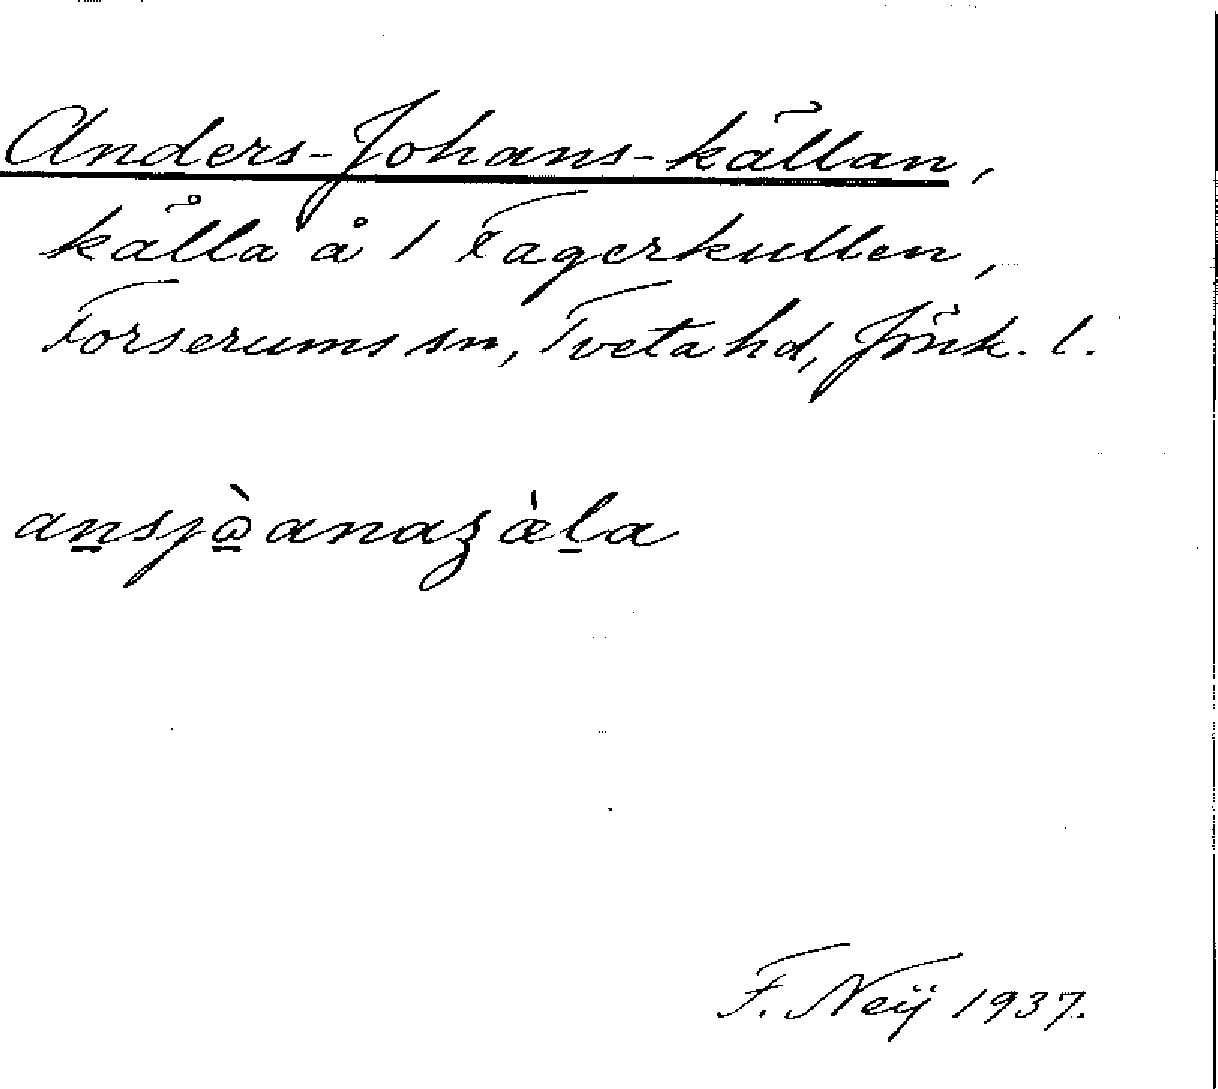 Anders-Johans-källan,
källa å 1 Fagerkullen,
Forserums sn, Tveta hd, Jönk. l.
F. Neij 1937.